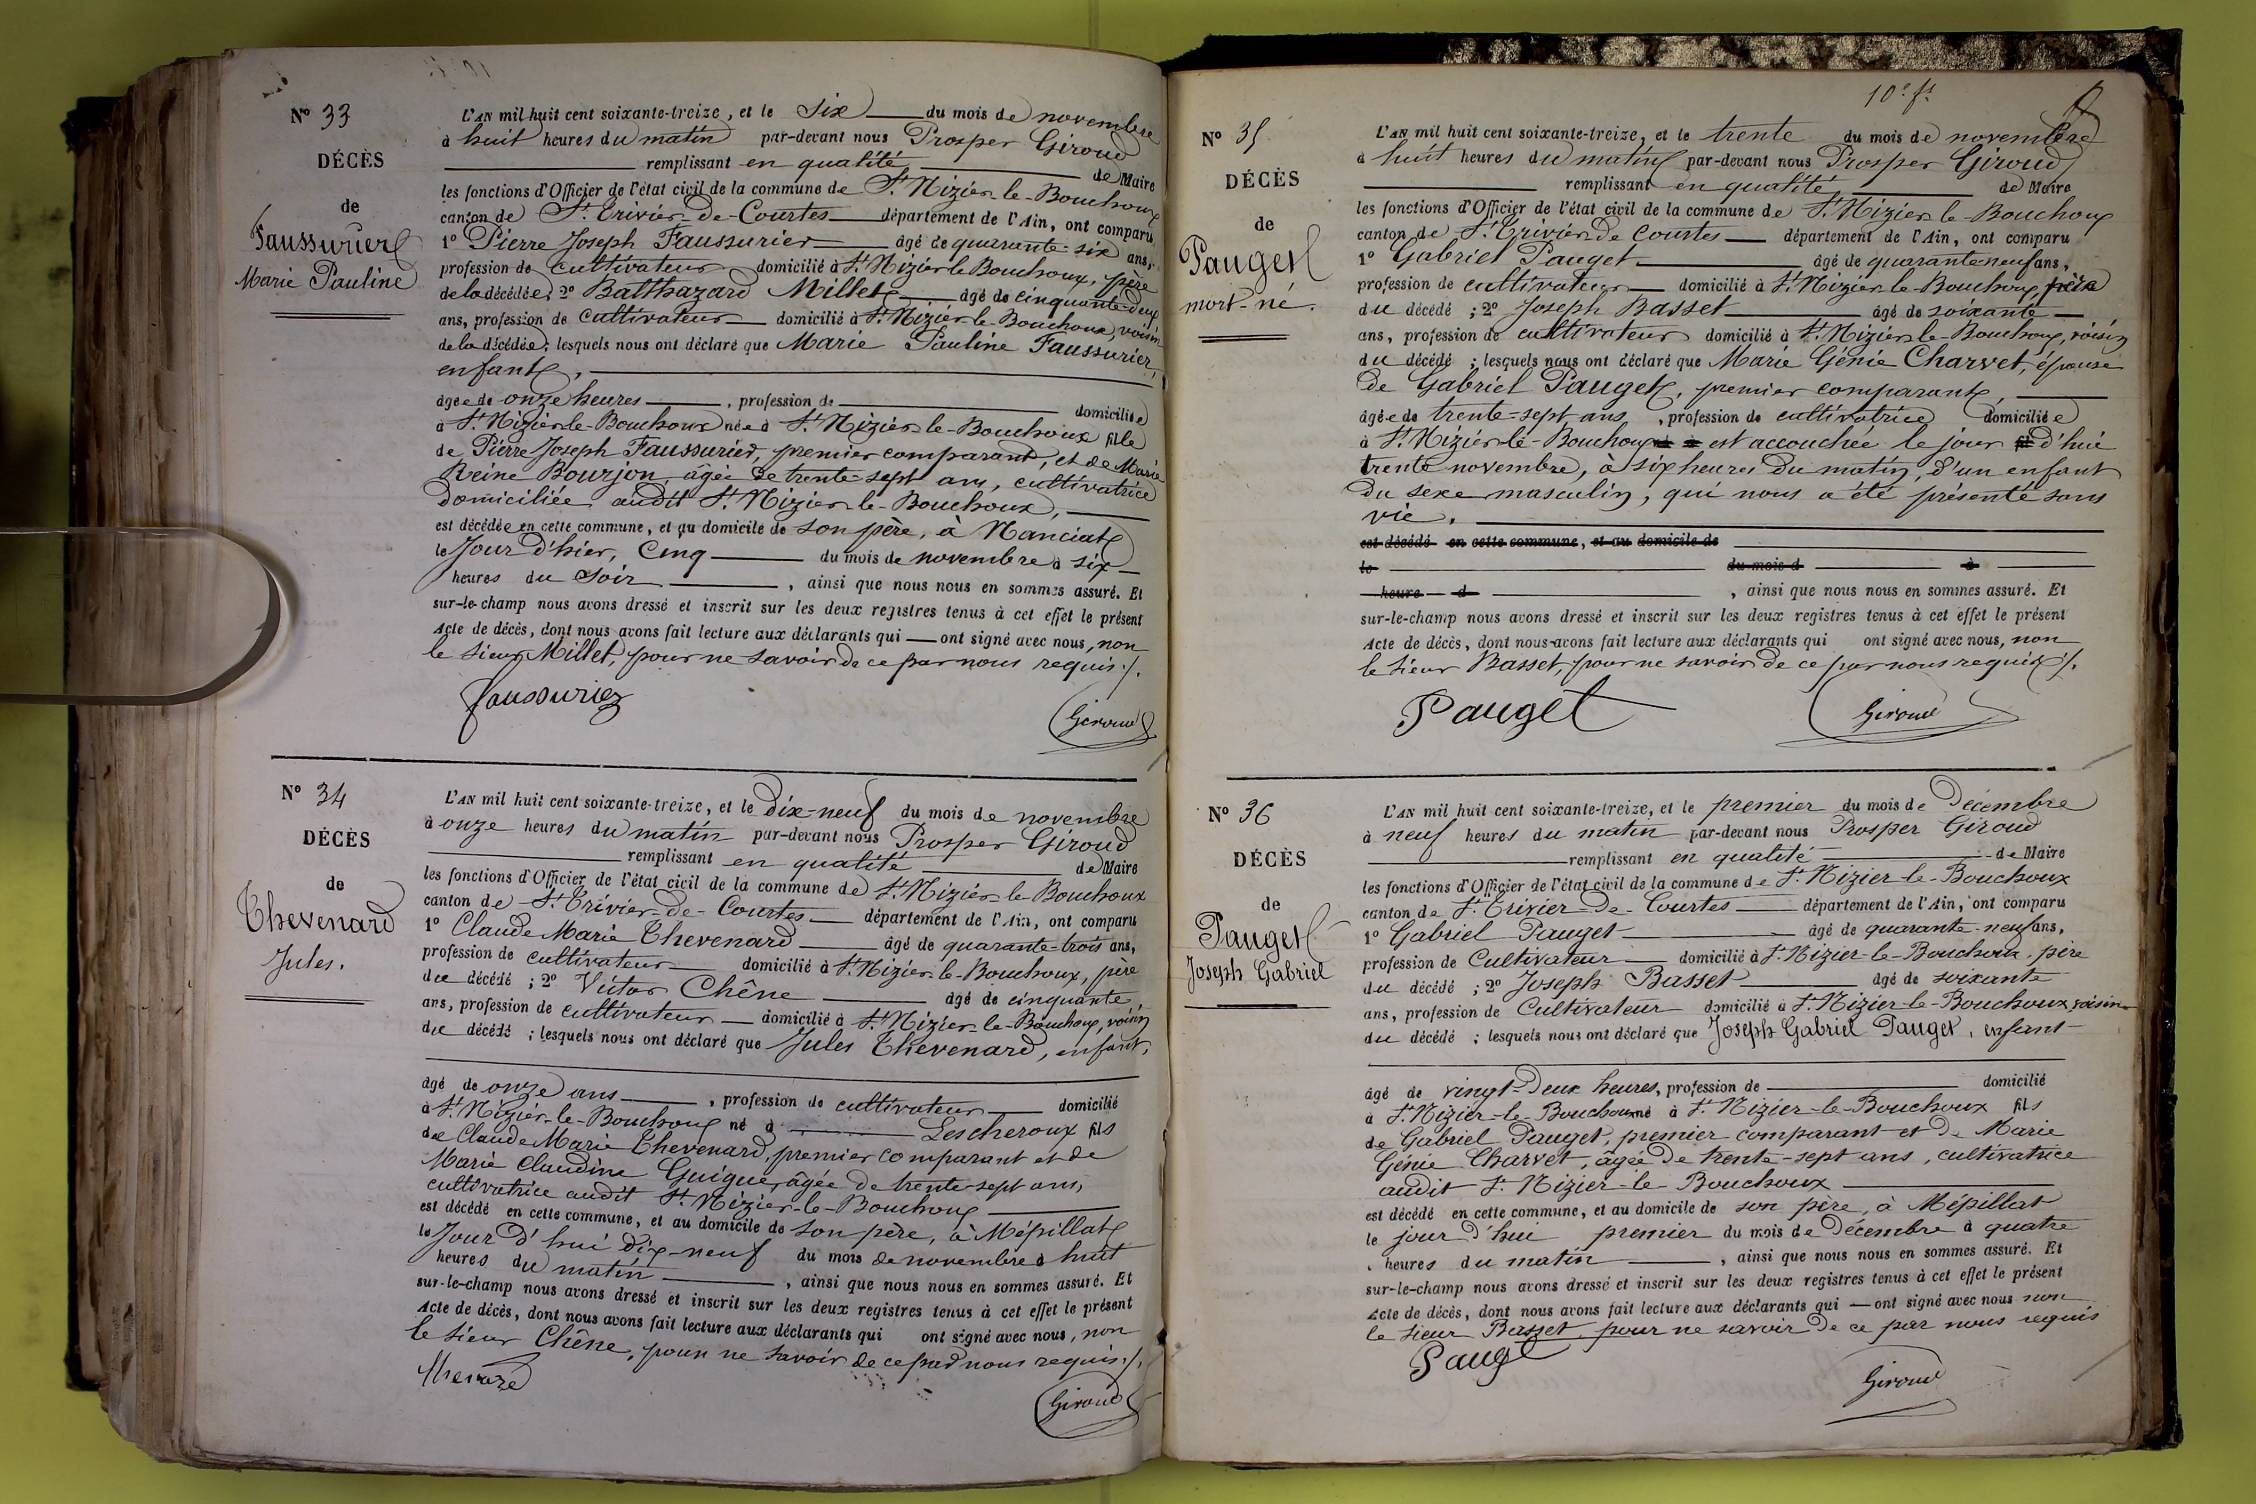 Nº 33
DÉCÈS
de
Faussurier
Marie Pauline
L'AN mil huit cent soixante-treize, et le six du mois de novembre
à huit heures du matin par-devant nous Prosper Giroud
remplissant en qualité de Maire
les fonctions d'Officier de l'état civil de la commune de St Nizier-le-Bouchoux
canton de St Trivier-de-Courtes département de l'Ain, ont comparu
1º Pierre Joseph Faussurier âgé de quarante-six ans,
profession de cultivateur domicilié à St Nizier le Bouchoux, père
de la décédée; 2º Balthazard Millet âgé de cinquante-deux
ans, profession de cultivateur domicilié à St Nizier-le-Bouchoux, voisin
de la décédée; lesquels nous ont déclaré que Marie Pauline Faussurier,
enfant,
âgée de onze heures, profession de domiciliée
à St Nizier-le-Bouchoux née à St Nizier-le-Bouchoux fille
de Pierre Joseph Faussurier, premier comparant, et de Marie
Reine Bourjon, âgée de trente-sept ans, cultivatrice
domiciliée audit St Nizier-le-Bouchoux,
est décédée en cette commune, et au domicile de son père, à Manciat
le Jour d'hier, cinq du mois de novembre à six
heures du soir, ainsi que nous nous en sommes assuré. Et
sur-le-champ nous avons dressé et inscrit sur les deux registres tenus à cet effet le présent
Acte de décès, dont nous avons fait lecture aux déclarants qui ont signé avec nous, non
le sieur Millet, pour ne savoir de ce par nous requis ./.
faussurier
Giroud
Nº 34
DÉCÈS
de
Thevenard
Jules.
L'AN mil huit cent soixante-treize, et le dix-neuf du mois de novembre
à onze heures du matin par-devant nous Prosper Giroud
remplissant en qualité de Maire
les fonctions d'Officier de l'état civil de la commune de St Nizier-le-Bouchoux
canton de St Trivier-de-Courtes département de l'Ain, ont comparu
1º Claude Marie Thevenard âgé de quarante-trois ans,
profession de cultivateur domicilié à St Nizier-le-Bouchoux, père
du décédé; 2º Victor Chêne âgé de cinquante
ans, profession de cultivateur domicilié à St Nizier-le-Bouchoux, voisin
du décédé; lesquels nous ont déclaré que Jules Thevenard, enfant,
âgé de onze ans, profession de cultivateur domicilié
à St Nizier-le-Bouchoux né à Lescheroux fils
de Claude Marie Thevenard, premier comparant et de
Marie Claudine Guigue, âgée de trente-sept ans,
cultivatrice audit St Nizier-le-Bouchoux
est décédé en cette commune, et au domicile de son père, à Mépillat
le Jour d'hui dix-neuf du mois de novembre à huit
heures du matin, ainsi que nous nous en sommes assuré. Et
sur-le-champ nous avons dressé et inscrit sur les deux registres tenus à cet effet le présent
Acte de décès, dont nous avons fait lecture aux déclarants qui ont signé avec nous, non
le sieur Chêne, pour ne savoir de ce par nous requis ./.
Giroud
10e ft
Nº 35
DÉCÈS
de
Pauget
mort-né.
L'AN mil huit cent soixante-treize, et le trente du mois de novembre
à huit heures du matin par-devant nous Prosper Giroud
remplissant en qualité de Maire
les fonctions d'Officier de l'état civil de la commune de St Nizier le-Bouchoux
canton de St Trivier de Courtes département de l'Ain, ont comparu
1º Gabriel Pauget âgé de quarante-neuf ans,
profession de cultivateur domicilié à St Nizier-le-Bouchoux, père
du décédé; 2º Joseph Basset âgé de soixante
ans, profession de cultivateur domicilié à St Nizier-le-Bouchoux, voisin
du décédé; lesquels nous ont déclaré que Marie Génie Charvet, épouse
de Gabriel Pauget, premier comparant,
âgée de trente-sept ans, profession de cultivatrice domiciliée
à St Nizier-le-Bouchoux est accouchée le jour d'hui
trente novembre, à six heures du matin, d'un enfant
du sexe masculin, qui nous a été présenté sans
vie.
est décédé en cette commune, et au domicile de
le du mois d à
heure d, ainsi que nous nous en sommes assuré. Et
sur-le-champ nous avons dressé et inscrit sur les deux registres tenus à cet effet le présent
Acte de décès, dont nous avons fait lecture aux déclarants qui ont signé avec nous, non
le sieur Basset, pour ne savoir de ce par nous requis ./.
Pauget
Giroud
Nº 36
DÉCÈS
de
Pauget
Joseph Gabriel
L'AN mil huit cent soixante-treize, et le premier du mois de Décembre
à neuf heures du matin par-devant nous Prosper Giroud
remplissant en qualité de Maire
les fonctions d'Officier de l'état civil de la commune de St Nizier-le-Bouchoux
canton de St Trivier-de-Courtes département de l'Ain, ont comparu
1º Gabriel Pauget âgé de quarante-neuf ans,
profession de Cultivateur domicilié à St Nizier-le-Bouchoux père
du décédé; 2º Joseph Basset âgé de soixante
ans, profession de Cultivateur domicilié à St Nizier-le-Bouchoux, voisin
du décédé; lesquels nous ont déclaré que Joseph Gabriel Pauget, enfant
âgé de vingt-deux heures, profession de domicilié
à St Nizier-le-Bouchoux né à St Nizier-le-Bouchoux fils
de Gabriel Pauget, premier comparant et de Marie
Génie Charvet, âgée de trente-sept ans, cultivatrice
audit St Nizier-le-Bouchoux
est décédé en cette commune, et au domicile de son père, à Mépillat
le jour d'hui premier du mois de Décembre à quatre
heures du matin, ainsi que nous nous en sommes assuré. Et
sur-le-champ nous avons dressé et inscrit sur les deux registres tenus à cet effet le présent
Acte de décès, dont nous avons fait lecture aux déclarants qui ont signé avec nous non
le sieur Basset pour ne savoir de ce par nous requis
Pauget
Giroud